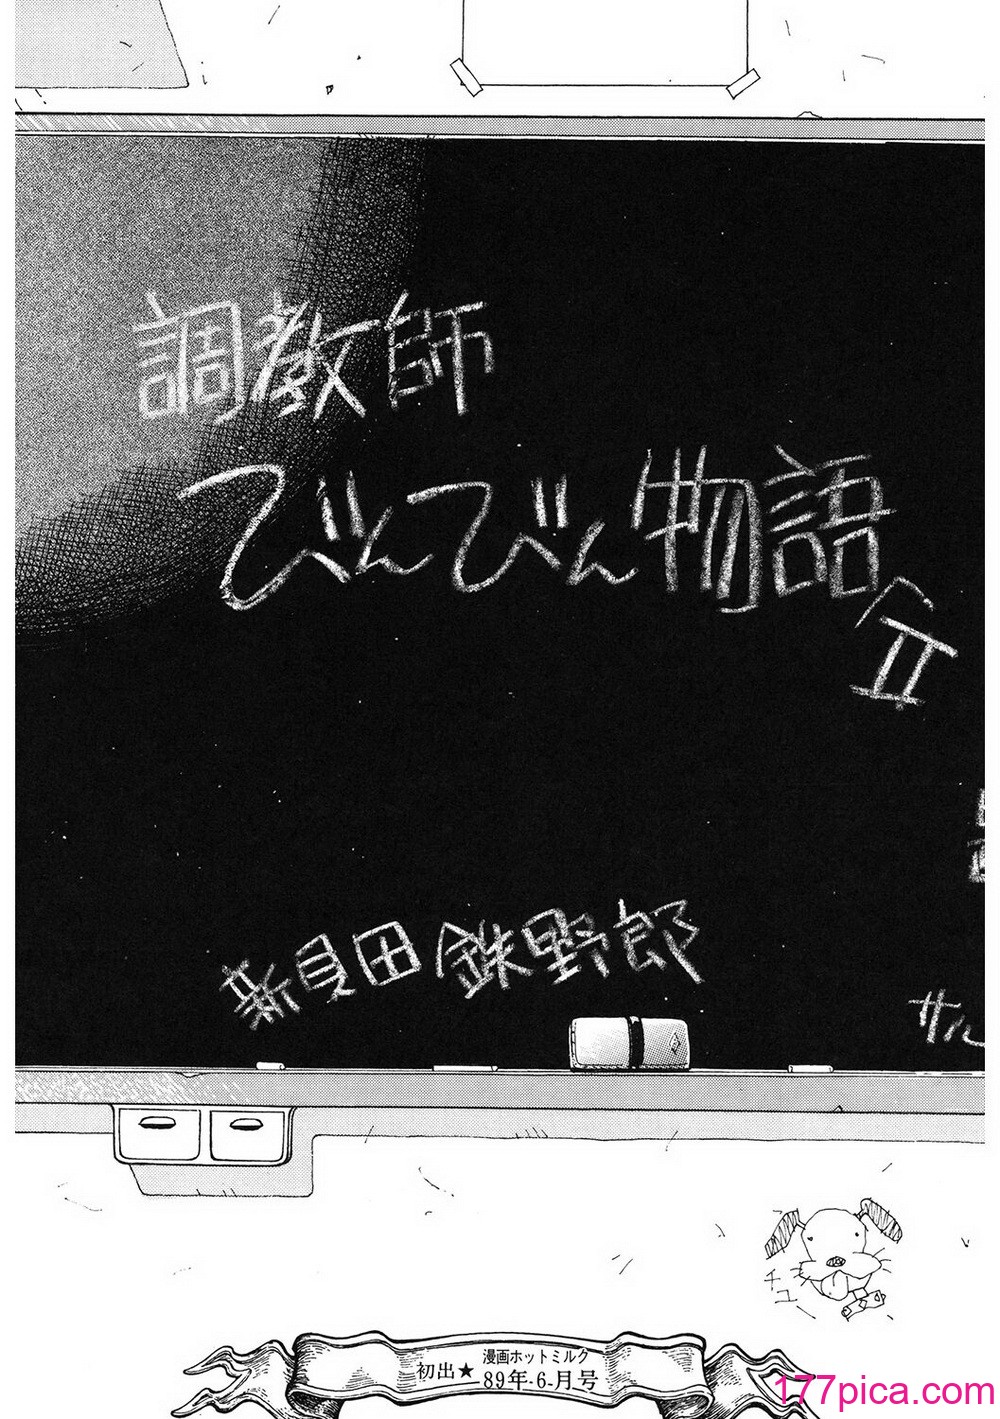 調教師
びんびん物語
II
新貝田鉄野郎
サル
チュー
漫画ホットミルク
初出★89年-6-月号
177pica.com